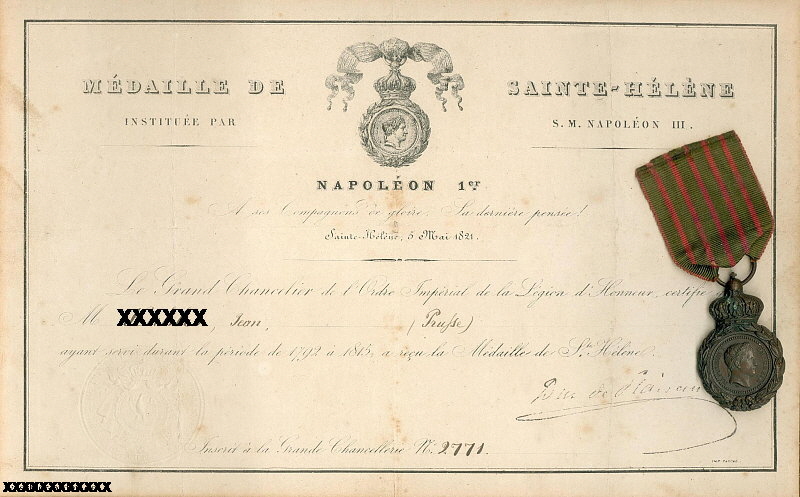 MÉDAILLE DE SAINTE-HÉLÈNE
INSTITUÉE PAR S. M. NAPOLÉON III.
NAPOLÉON 1er
A ses Compagnons de gloire. Sa dernière pensée!
Sainte-Hélène, 5 Mai 1821.
Le Grand Chancelier de l'Ordre Impérial de la Légion d'Honneur, certifie
M XXXXXX, Jean, (Prusse)
ayant servi durant la période de 1792 à 1815, a reçu la Médaille de Ste Hélène.
Duc de Plaisance
Inscrit à la Grande Chancellerie No. 2771.